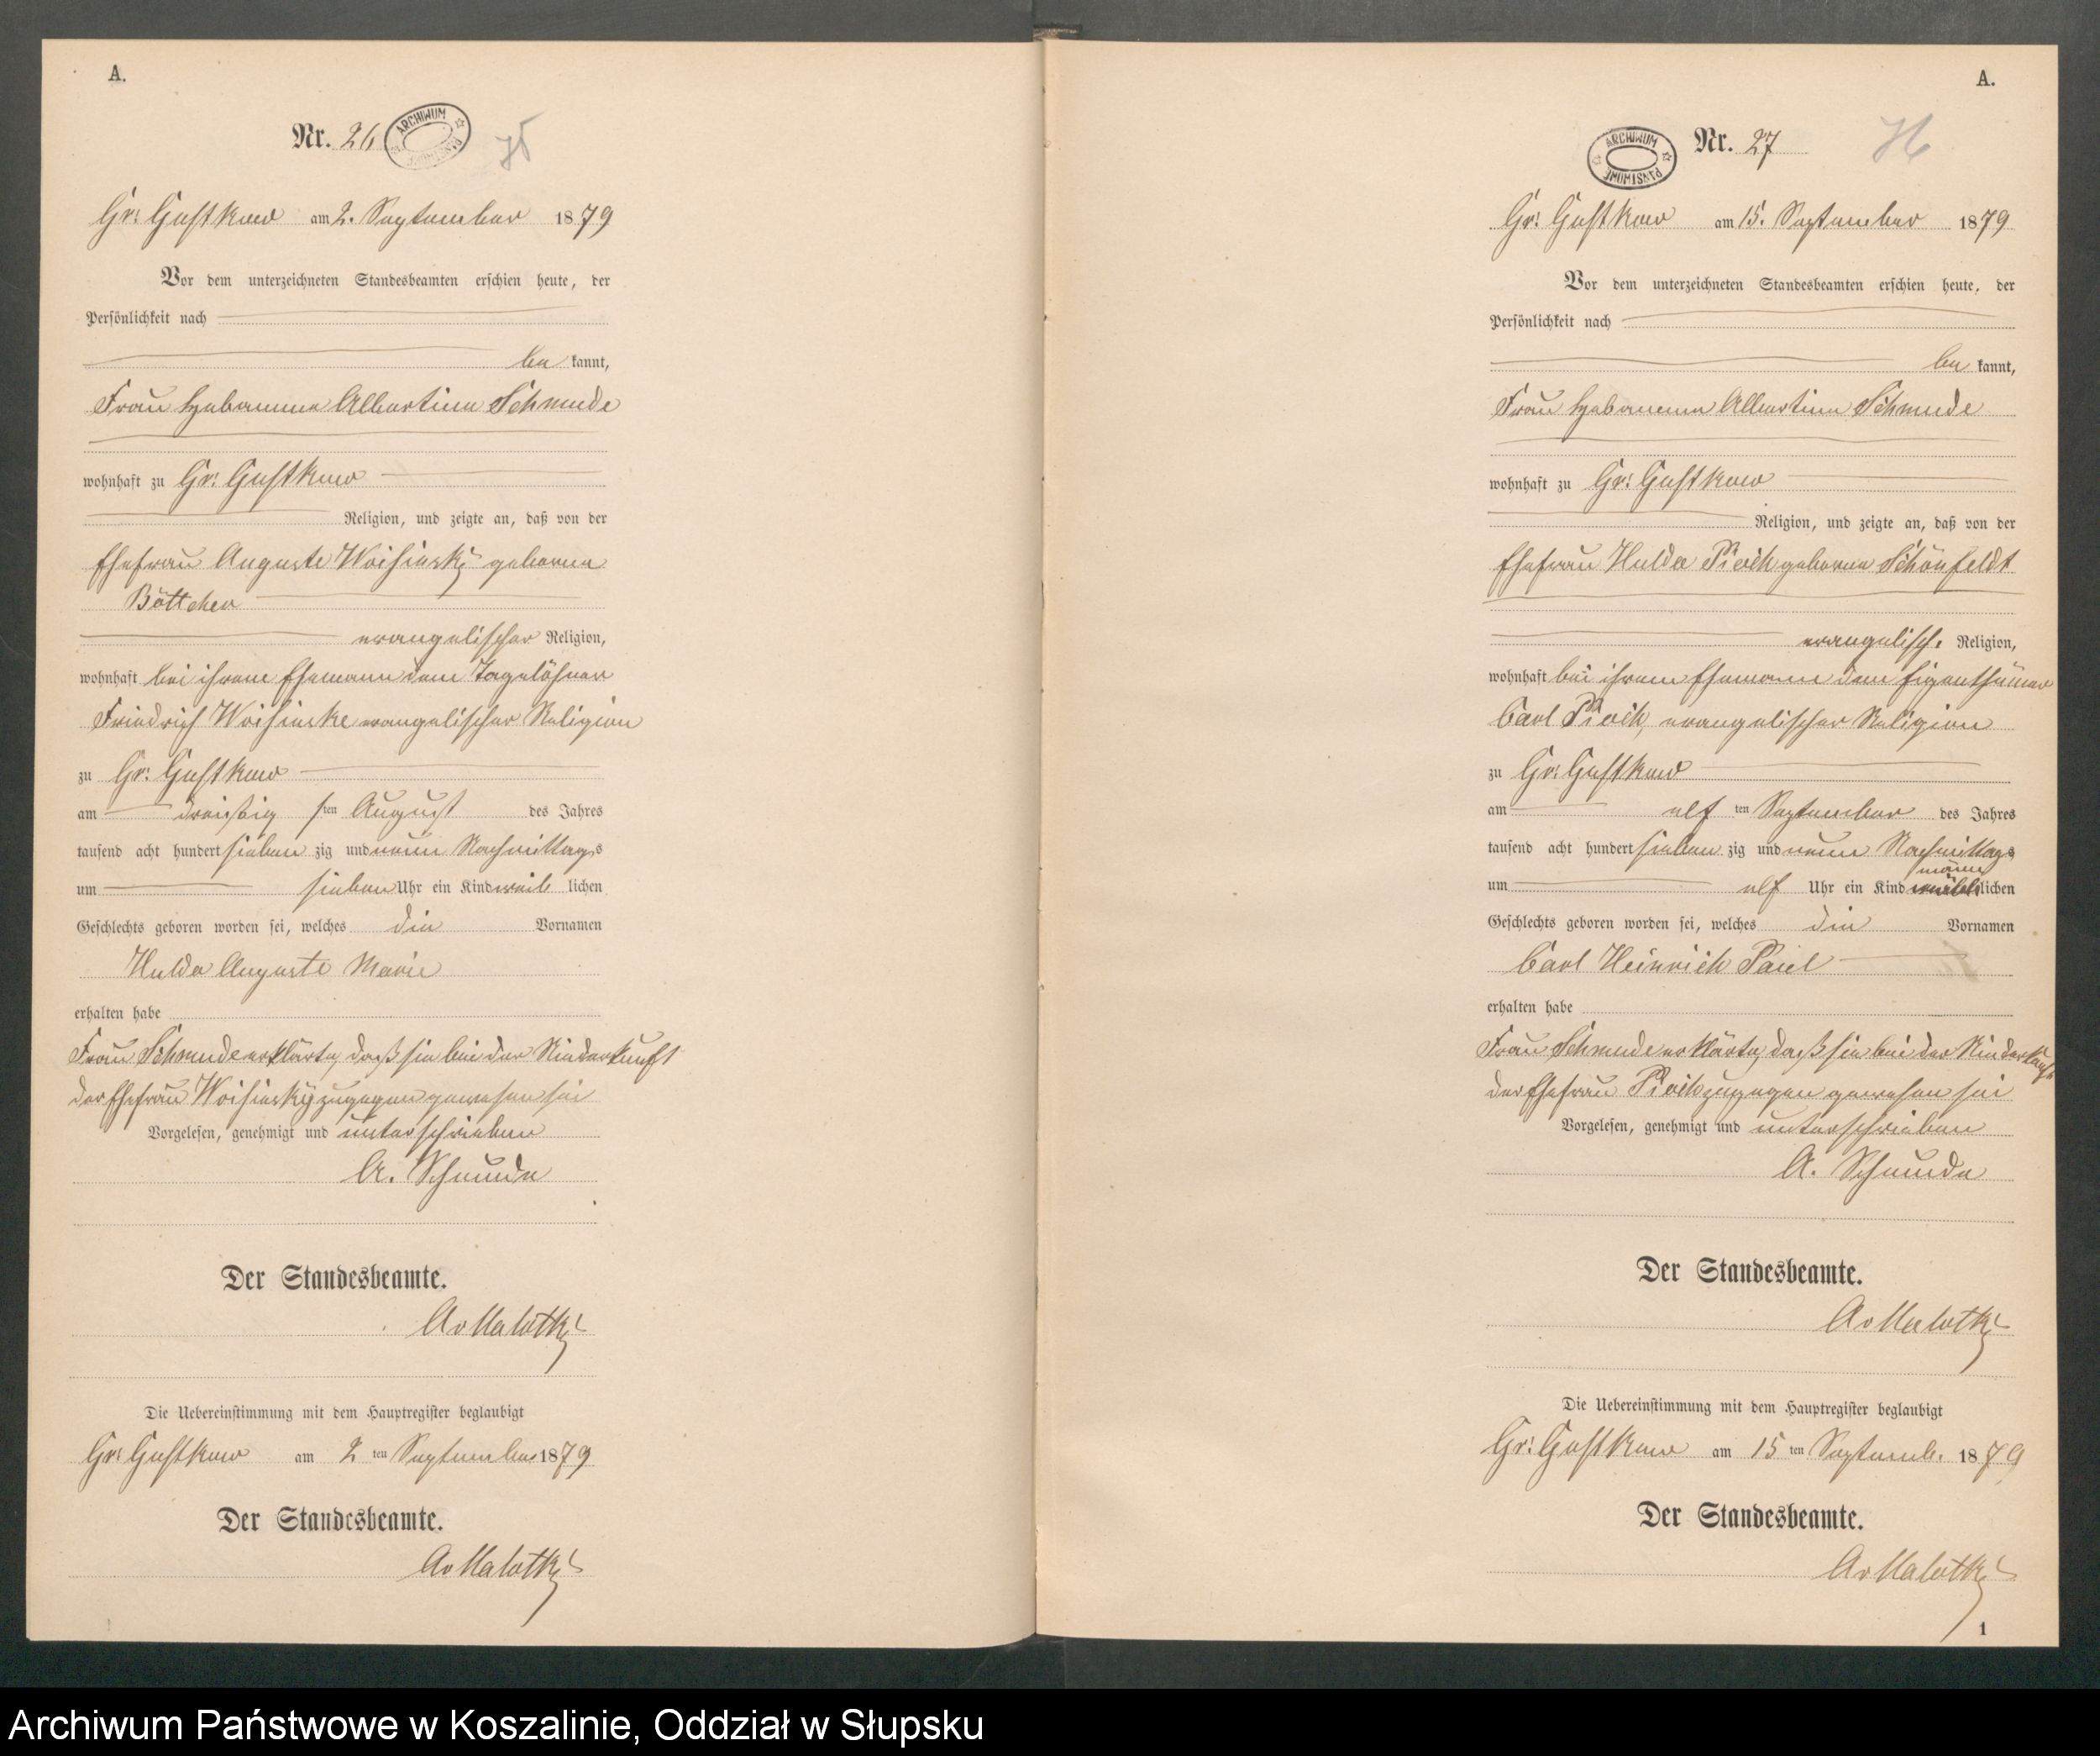 A.
Nr. 26
ARCHIWUM PAŃSTWOWE
Gr: Gustkow am 2. September 1879
Vor dem unterzeichneten Standesbeamten erschien heute, der
Persönlichkeit nach
be kannt,
Frau Hebamme Albertine Schmude
wohnhaft zu Gr: Gustkow
Religion, und zeigte an, daß von der
Ehefrau Auguste Woisinsky geborene
Böttcher
evangelischer Religion,
wohnhaft bei ihrem Ehemann dem Tagelöhner
Friedrich Woisinske evangelischer Religion
zu Gr: Gustkow
am dreißig sten August des Jahres
tausend acht hundert sieben zig und neun Nachmittags
um sieben Uhr ein Kind weib lichen
Geschlechts geboren worden sei, welches die Vornamen
Hulda Auguste Marie
erhalten habe
Frau Schmude erklärte, daß sie bei der Niederkunft
der Ehefrau Woisinsky zugegen gewesen sei
Vorgelesen, genehmigt und unterschrieben
A. Schmude
Der Standesbeamte.
A v Malottki
Die Uebereinstimmung mit dem Hauptregister beglaubigt
Gr: Gustkow am 2 ten September 1879
Der Standesbeamte.
A v Malottki
A.
ARCHIWUM PAŃSTWOWE
Nr. 27
76
Gr: Gustkow am 15. September 1879
Vor dem unterzeichneten Standesbeamten erschien heute, der
Persönlichkeit nach
be kannt,
Frau Hebamme Albertine Schmude
wohnhaft zu Gr: Gustkow
Religion, und zeigte an, daß von der
Ehefrau Hulda geborene Schönfeldt
evangelisch. Religion,
wohnhaft bei ihrem Ehemann dem Eigenthümer
Carl evangelischer Religion
zu Gr: Gustkow
am elf ten September des Jahres
tausend acht hundert sieben zig und neun Nachmittags
männ
um elf Uhr ein Kind weib lichen
Geschlechts geboren worden sei, welches die Vornamen
Carl Heinrich Paul
erhalten habe
Frau Schmude erklärte, daß sie bei der Niederkunft
der Ehefrau zugegen gewesen sei
Vorgelesen, genehmigt und unterschrieben
A. Schmude
Der Standesbeamte.
A v Malottki
Die Uebereinstimmung mit dem Hauptregister beglaubigt
Gr: Gustkow am 15 ten Septemb. 1879
Der Standesbeamte.
A v Malottki
1
Archiwum Państwowe w Koszalinie, Oddział w Słupsku